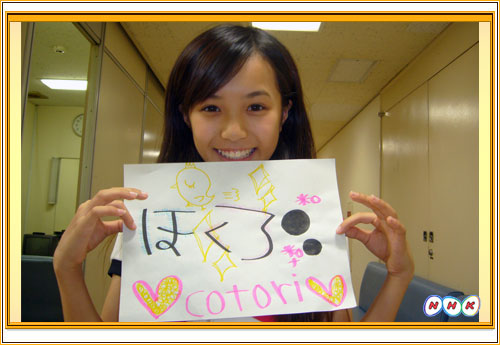 ほくろ
cotori
NHK